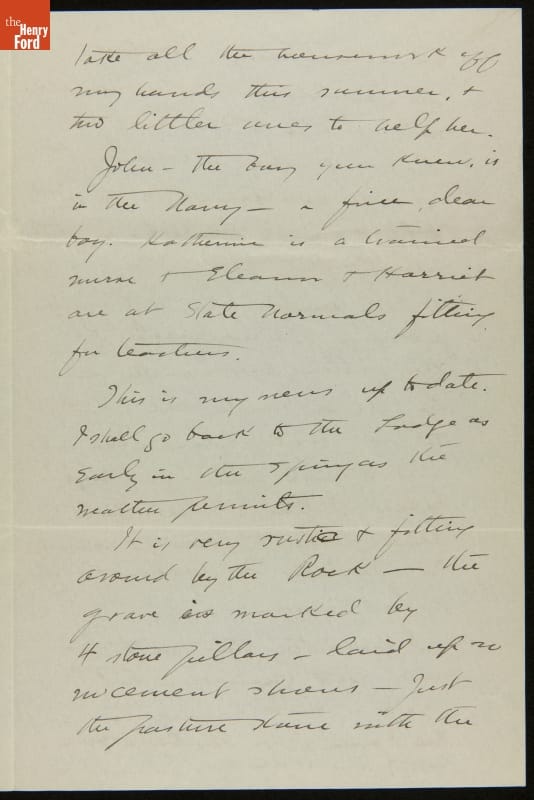 the
Henry
Ford
take all the housework off
my hands this summer, +
two littler ones to help her.
John – the boy you knew, is
in the Navy – a fine, dear
boy. Katherine is a trained
nurse + Eleanor + Harriet
are at State Normals fitting
for teachers.
This is my news up to date.
I shall go back to the Lodge as
early in the spring as the
weather permits.
It is very rustic + fitting
around by the Rock – the
grave is marked by
4 stone pillars – laid up so
no cement shows – Just
the pasture stone with the